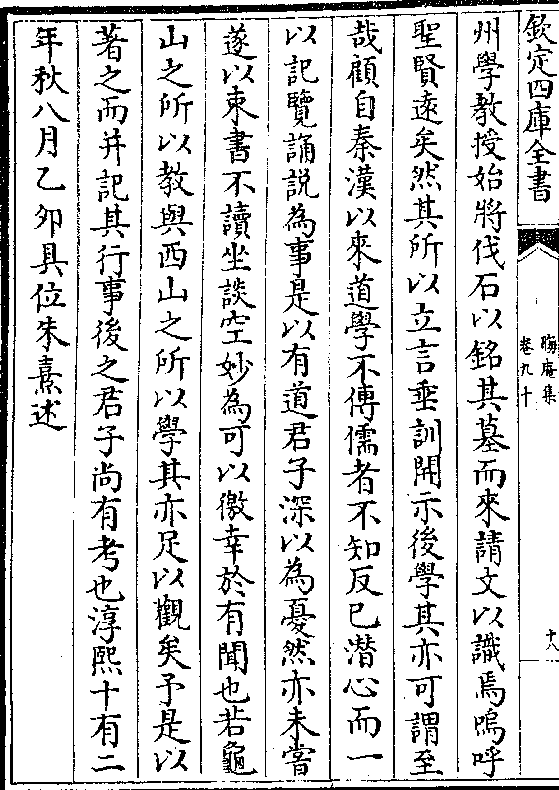 欽定四庫全書
晦庵集
卷九十
十八
州學教授始將伐石以銘其墓而來請文以識焉嗚呼
聖賢遠矣然其所以立言垂訓開示後學其亦可謂至
哉顧自秦漢以來道學不傳儒者不知反己潛心而一
以記覽誦説為事是以有道君子深以為憂然亦未嘗
遂以束書不讀坐談空妙為可以徼幸於有聞也若龜
山之所以教與西山之所以學其亦足以觀矣予是以
著之而并記其行事後之君子尚有考也淳熙十有二
年秋八月乙卯具位朱熹述